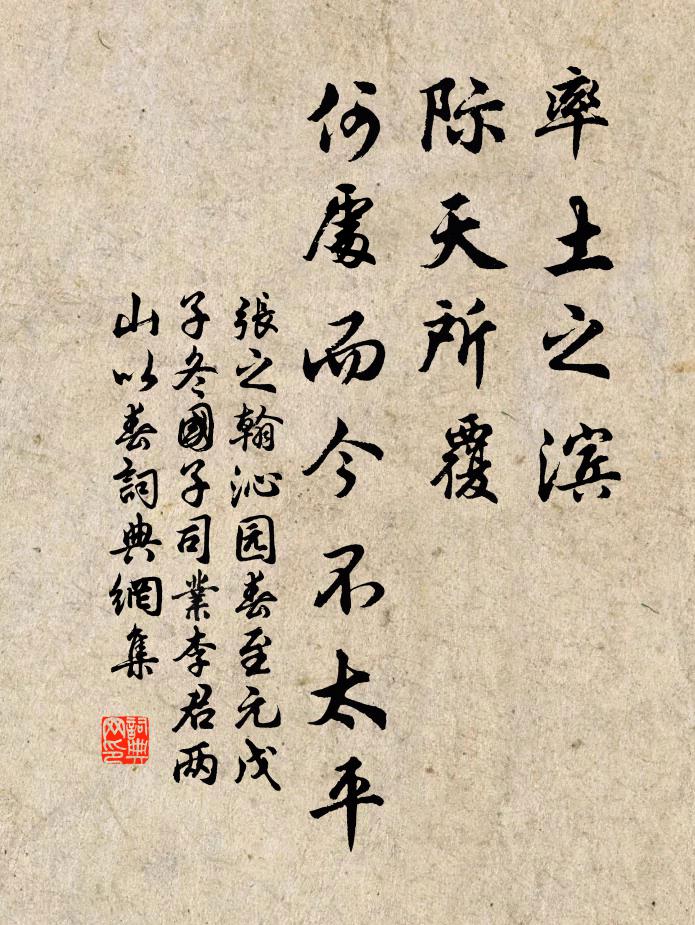 率土之滨
际天所覆
何處而今不太平
張之翰沁园春至元戊
子冬國子司業李君两
山以春詞典網集
詞典
网印